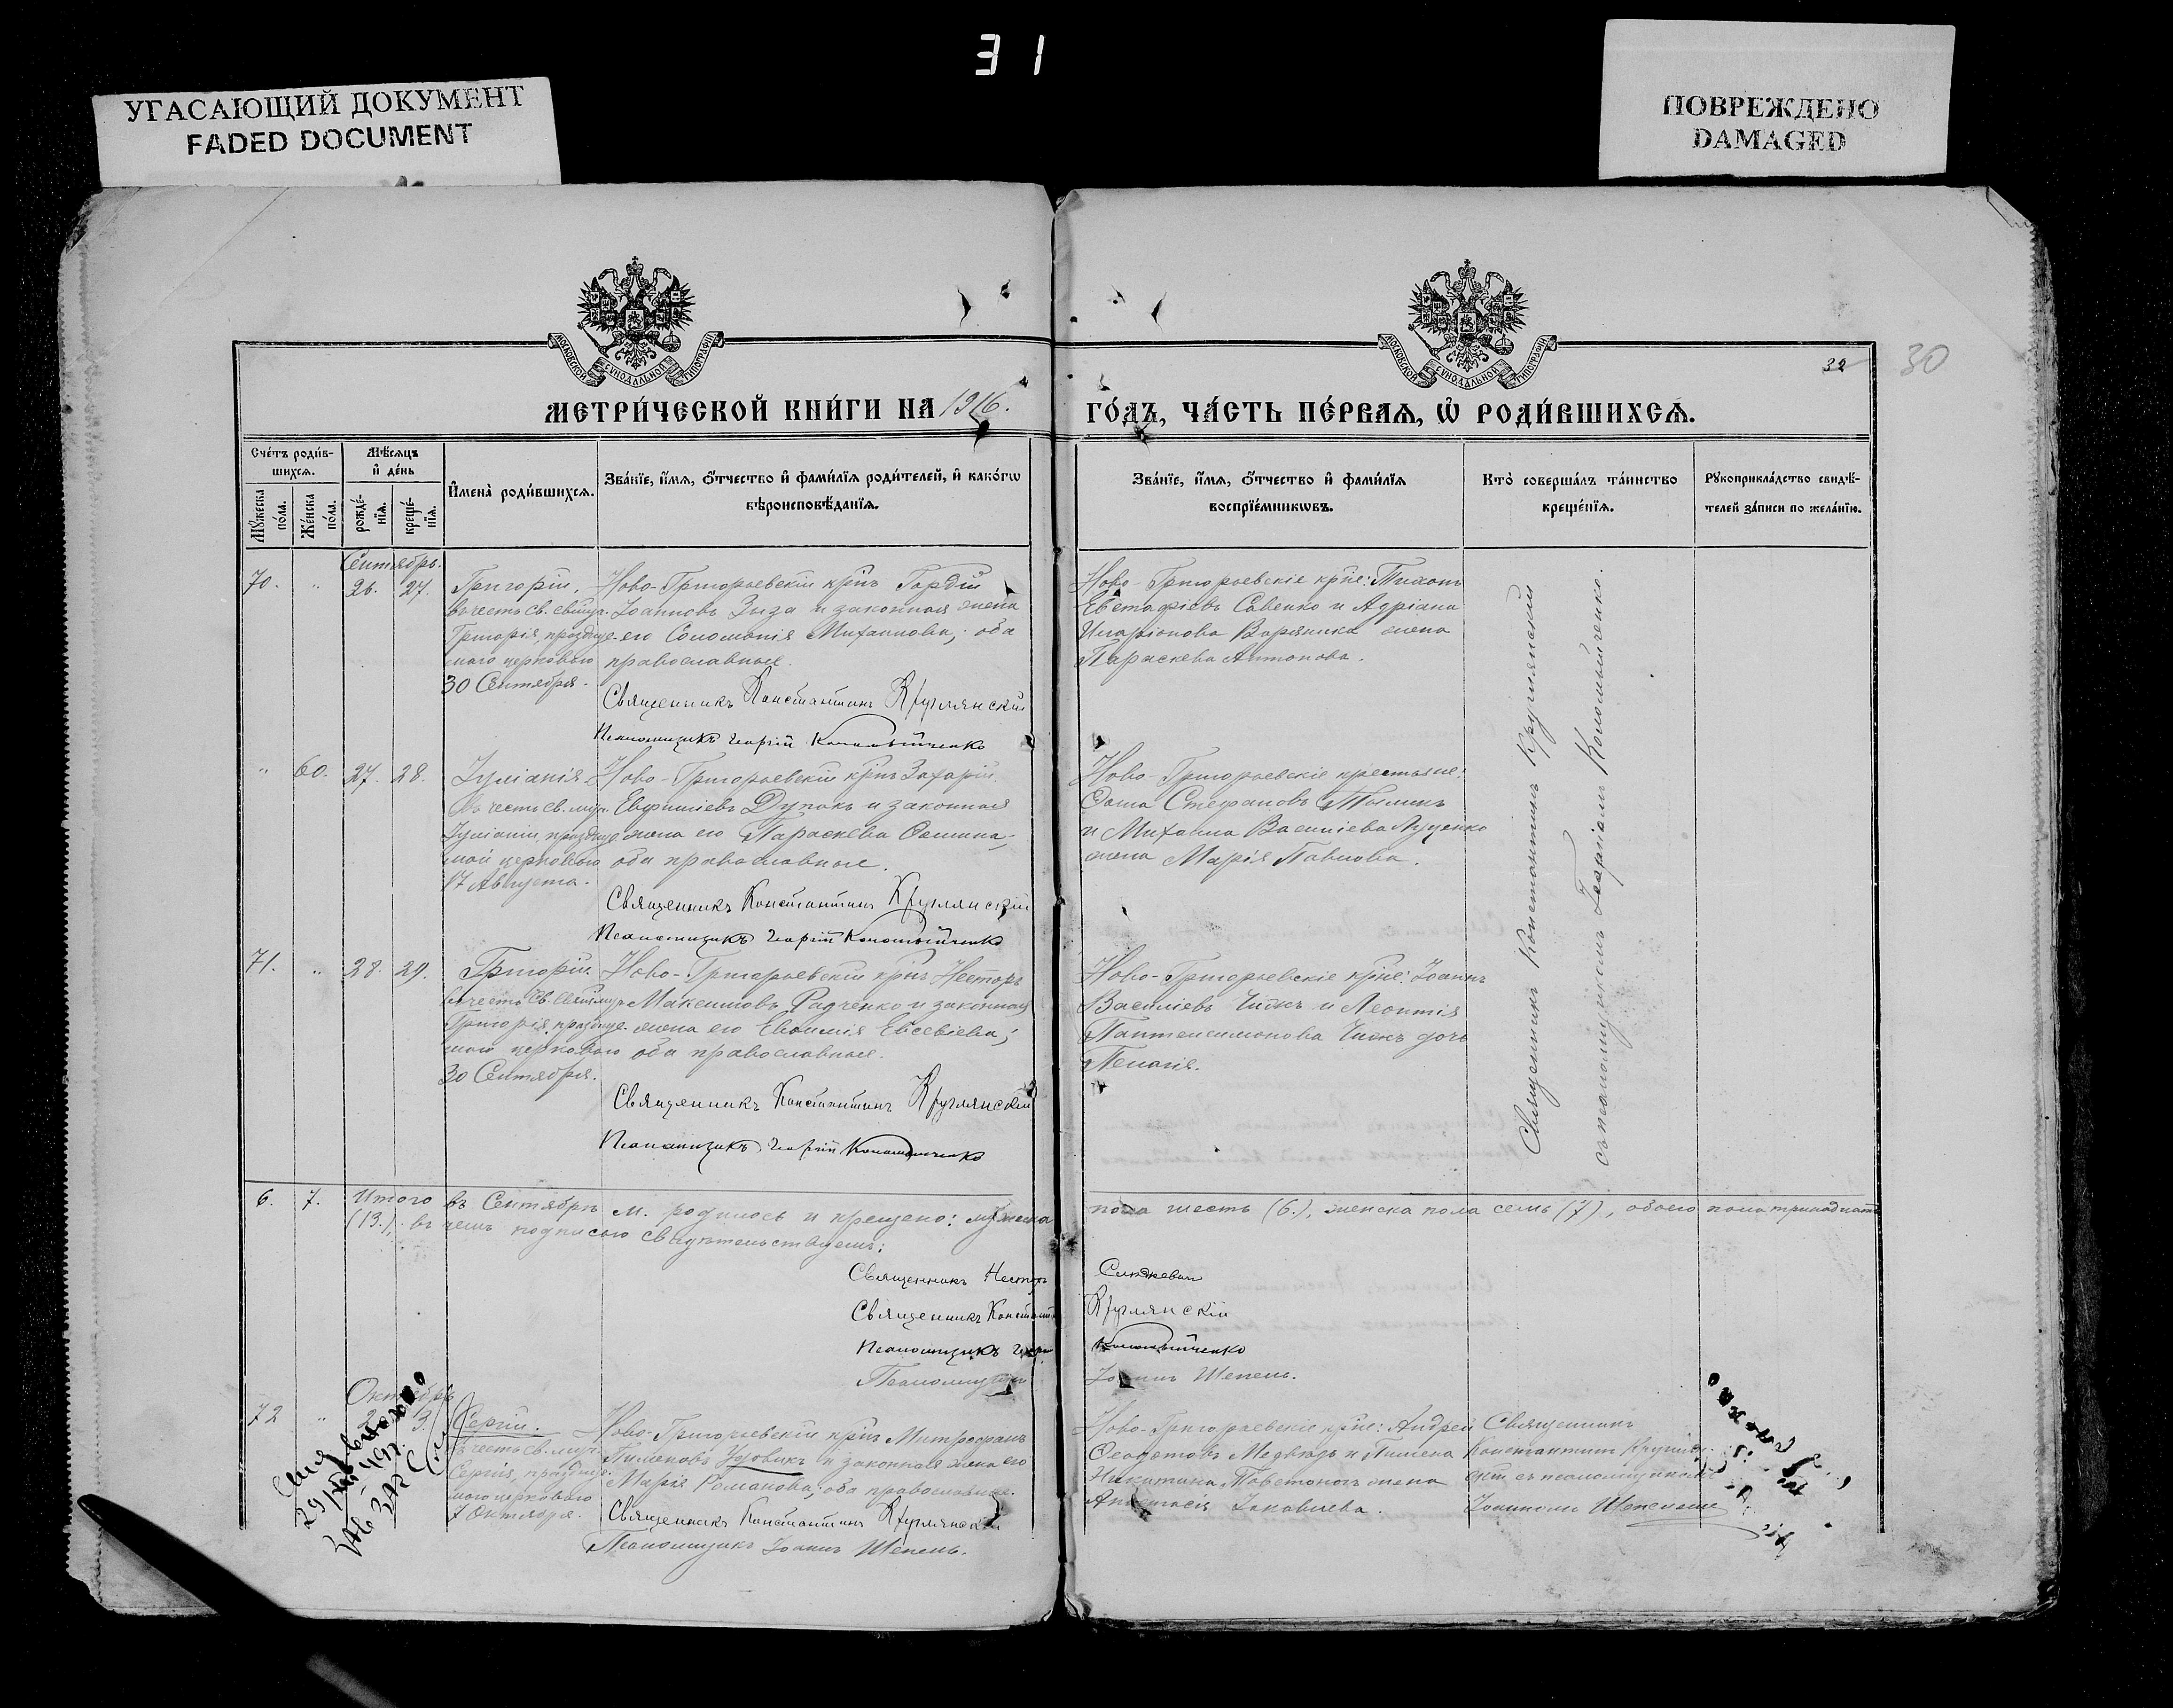 31
УГАСАЮЩИЙ ДОКУМЕНТ
FADED DOCUMENT
ПОВРЕЖДЕНО
DAMAGED
МОСКОВСКОЙ СѴНОДАЛЬНОЙ ТИПОГРАФІИ
МОСКОВСКОЙ СѴНОДАЛЬНОЙ ТИПОГРАФІИ
32
30
МЕТРИ́ЧЕСКОЙ КНИ́ГИ НА 1916.
ГО́ДЪ, ЧА́СТЬ ПЕ́РВАЯ, Ѡ҆ РОДИ́ВШИХСЯ.
Сче́тъ роди́в-
шихся.
Мѣ́сяцъ
и҆ де́нь
Мꙋ́жеска по́ла.
Же́нска по́ла.
рожде́-
нїя.
креще́-
нїя.
И҆мена̀ роди́вшихся.
Зва́нїе, и҆́мя, ѻ҆́тчество и҆ фами́лїя роди́телей, и҆ како́гѡ
вѣроисповѣ́данїя.
Зва́нїе, и҆́мя, ѻ҆́тчество и҆ фами́лїя
воспрїе́мникѡвъ.
Кто̀ соверша́лъ та́инство
креще́нїя.
Рꙋкоприкла́дство свидѣ́-
телей за́писи по жела́нїю.
Сентябрь.
70. " 26. 27.
Григорій,
въ честь св. свящ.
Григорія, праздуе-
маго церковью
30 Сентября.
Ново-Григорьевскій крнъ Гордій
Іоанновъ Зыза и законная жена
его Соломонія Михайлова; оба
православные.
Священникъ Константинъ Круглянскій
Псаломщикъ Георгій Коломыйченко
Ново-Григорьевскіе крне: Тихонъ
Евстафіевъ Савенко и Адріана
Иларіонова Вареника жена
Параскева Антонова.
Священникъ Константинъ Круглянскій
съ псаломщикомъ Георгіемъ Коломыйченко.
" 60. 27. 28.
Іуліанія
въ честь св. муч.
Іуліаніи, праздуе
мой церковью
17 Августа.
Ново-Григорьевскій крнъ Захарій
Евфиміевъ Дупакъ и законная
жена его Параскева Ѳомина,
оба православные.
Священникъ Константинъ Круглянскій
Псаломщикъ Георгій Коломыйченко
Ново-Григорьевскіе крестьяне:
Ѳома Стефановъ
и Михаила Василіева Луценко
жена Марія Павлова.
71. " 28. 29.
Григорій.
въ честь св. свящ. муч.
Григорія, праздуе-
маго церковью
30 Сентября.
Ново-Григорьевскій крнъ Несторъ
Максимовъ Радченко и законная
жена его Евфимія Евсевіева;
оба православные.
Священникъ Константинъ Круглянскій
Псаломщикъ Георгій Коломыйченко
Ново-Григорьевскіе крне: Іоаннъ
Василіевъ Чижъ и Леонтія
Пантелеимонова Чижъ дочь
Пелагія.
6. 7. Итого въ Сентябрѣ м. родилось и крещено: мужеска
пола шесть (6.), женска пола семь (7), обоего пола тринадцать
(13.), въ чемъ подписью свидѣтельствуемъ:
Священникъ Несторъ
Священникъ Константинъ Круглянскій
Псаломщикъ Георгій Коломыйченко
Псаломщикъ Іоаннъ Шепель.
Октябрь
72 " 2. 3.
Сергій.
въ честь св. муч.
Сергія, праздуе-
маго церковью
7 Октября.
Ново-Григорьевскій крнъ Митрофанъ
Пименовъ Удовикъ и законная жена его
Марія Романова, оба православные.
Священникъ Константинъ Круглянскій
Псаломщикъ Іоаннъ Шепель.
Ново-Григорьевскіе крне: Андрей
Ѳеодотовъ Медвѣдь и Пимена
Никитина жена
Анастасія Іаковлева.
Священникъ
Константинъ Круглян-
скій съ псаломщикомъ
Іоанномъ Шепелемъ